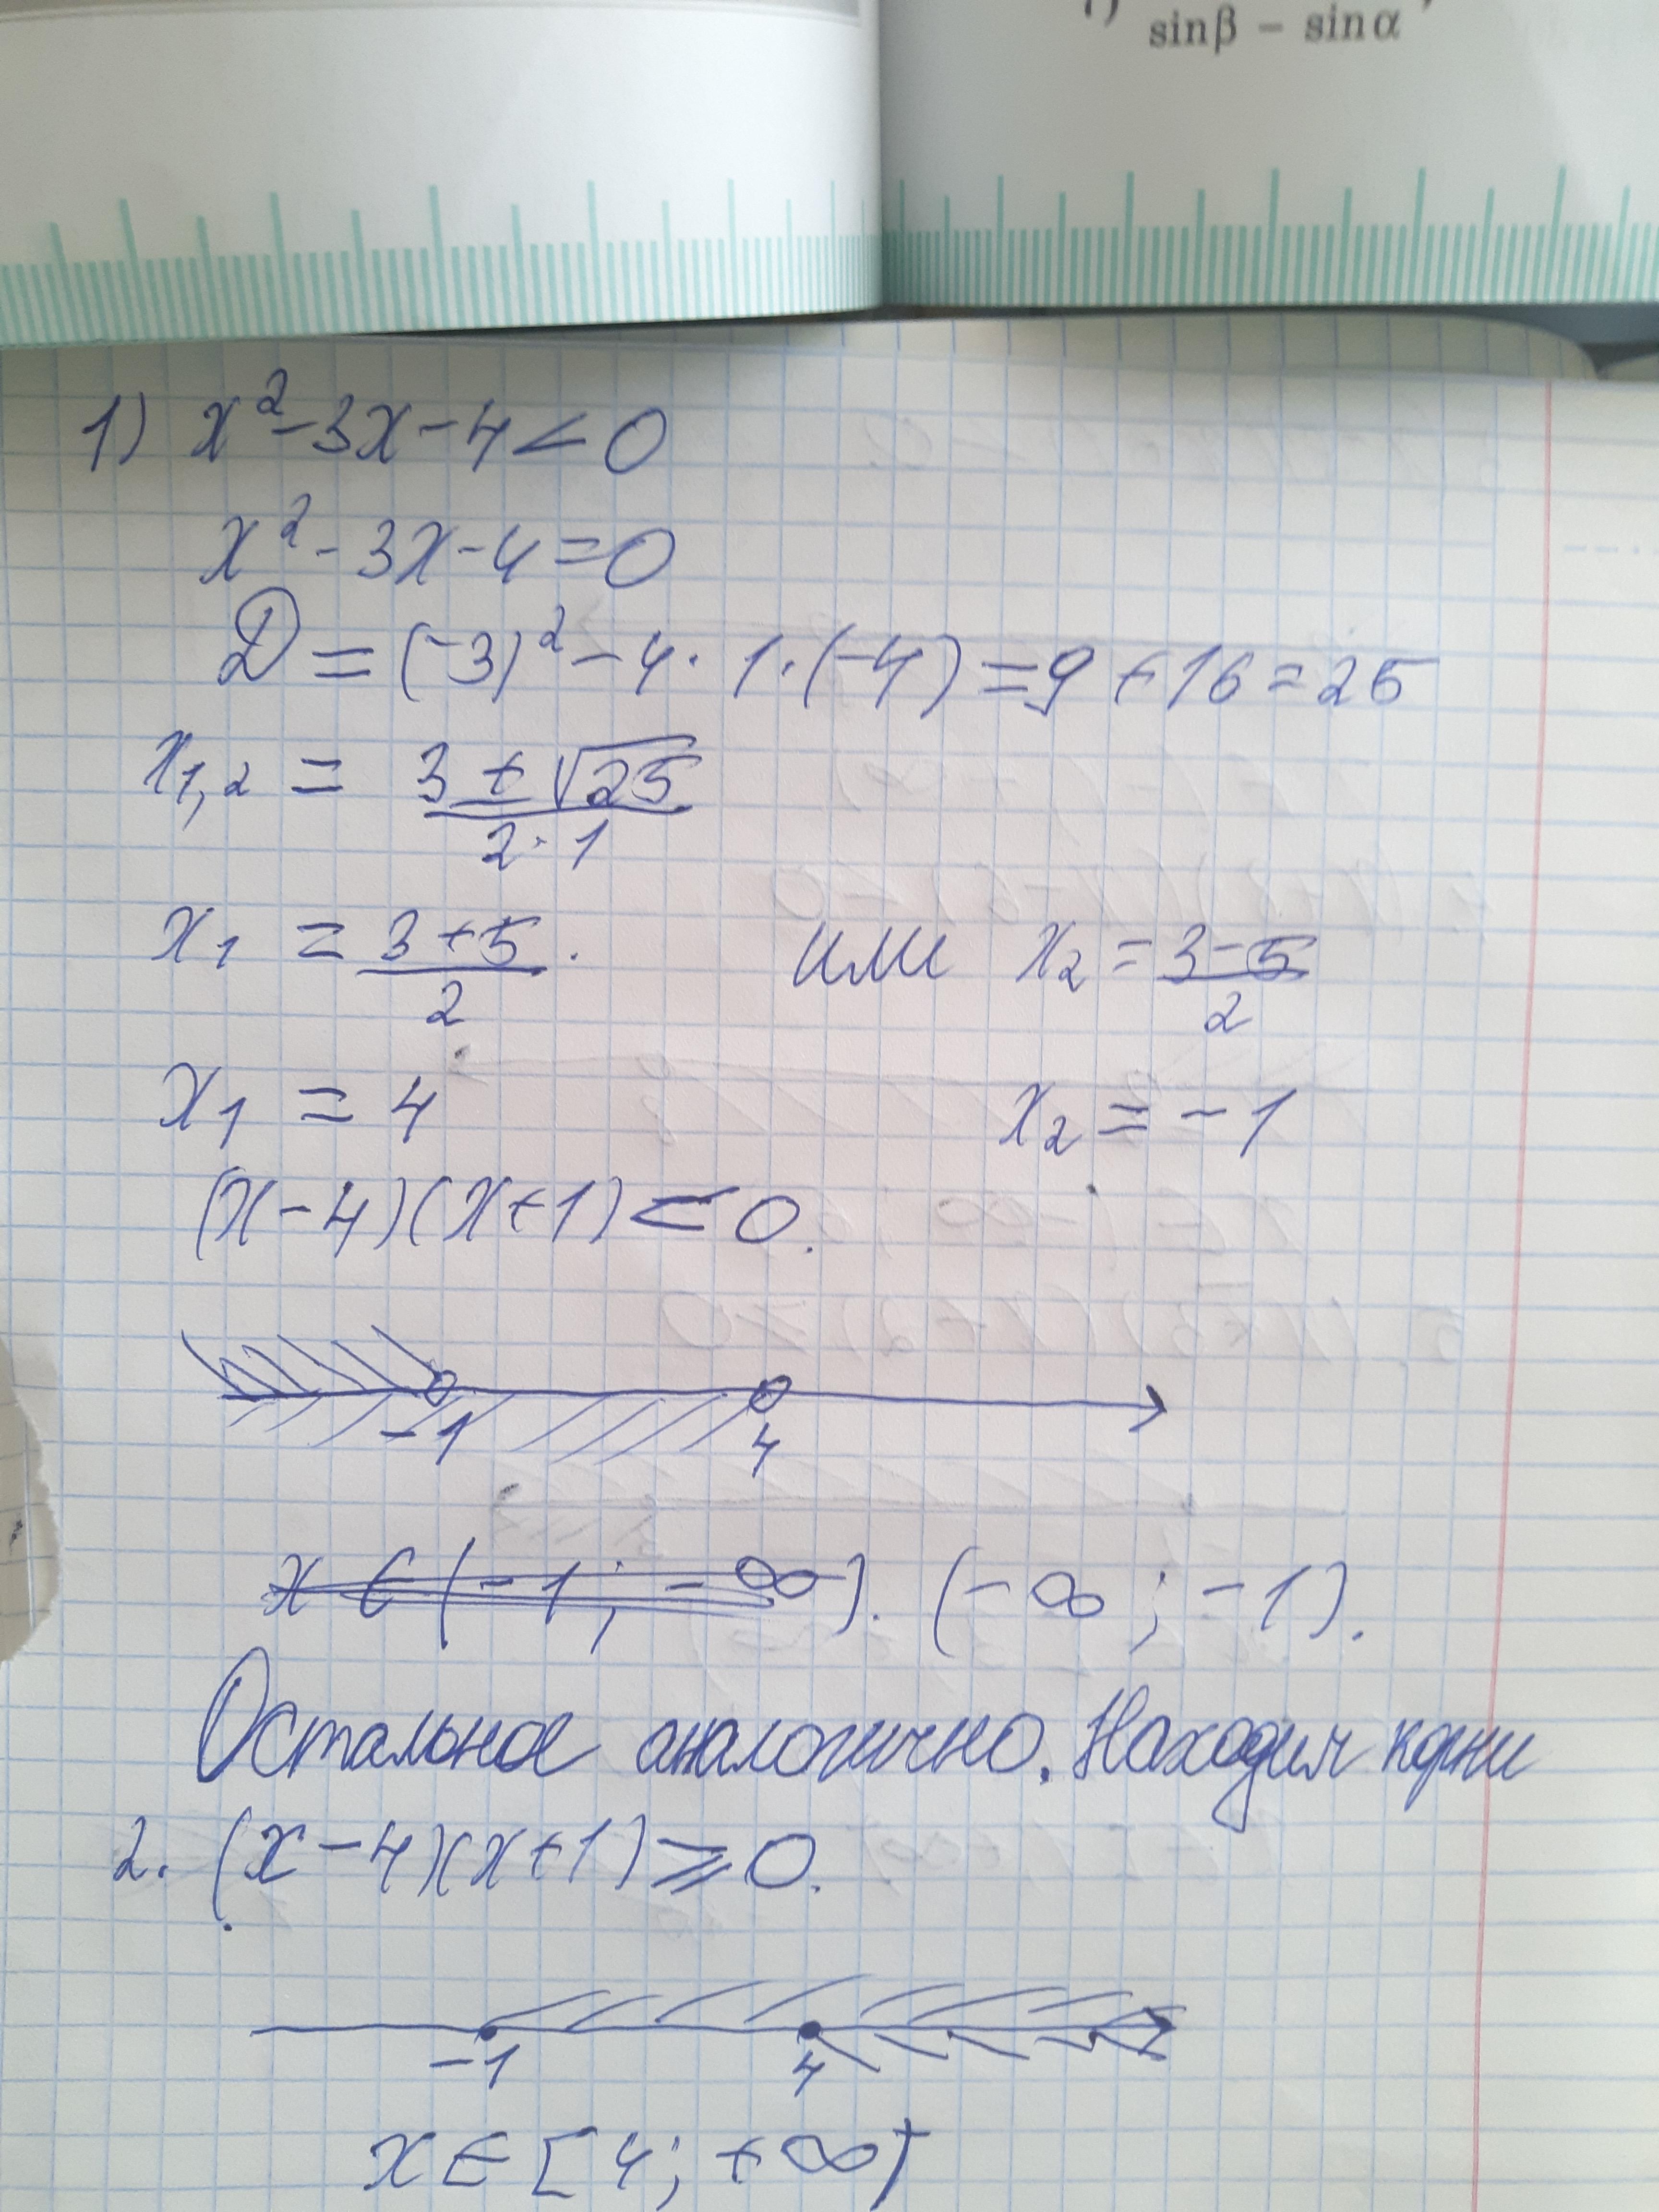 sinβ − sinα
1) x² - 3x - 4 < 0
x² - 3x - 4 = 0
D = (-3)² - 4 · 1 · (-4) = 9 + 16 = 25
x1,2 = (3 ± √25) / (2 · 1)
x1 = (3 + 5) / 2 . или x2 = (3 - 5) / 2
x1 = 4 x2 = -1
(x - 4)(x + 1) < 0.
-1 4
x ∈ (-1; -∞). (-∞; -1).
Остальное аналогично. Находим корни
2. (x - 4)(x + 1) ≥ 0.
-1 4
x ∈ [4; +∞)